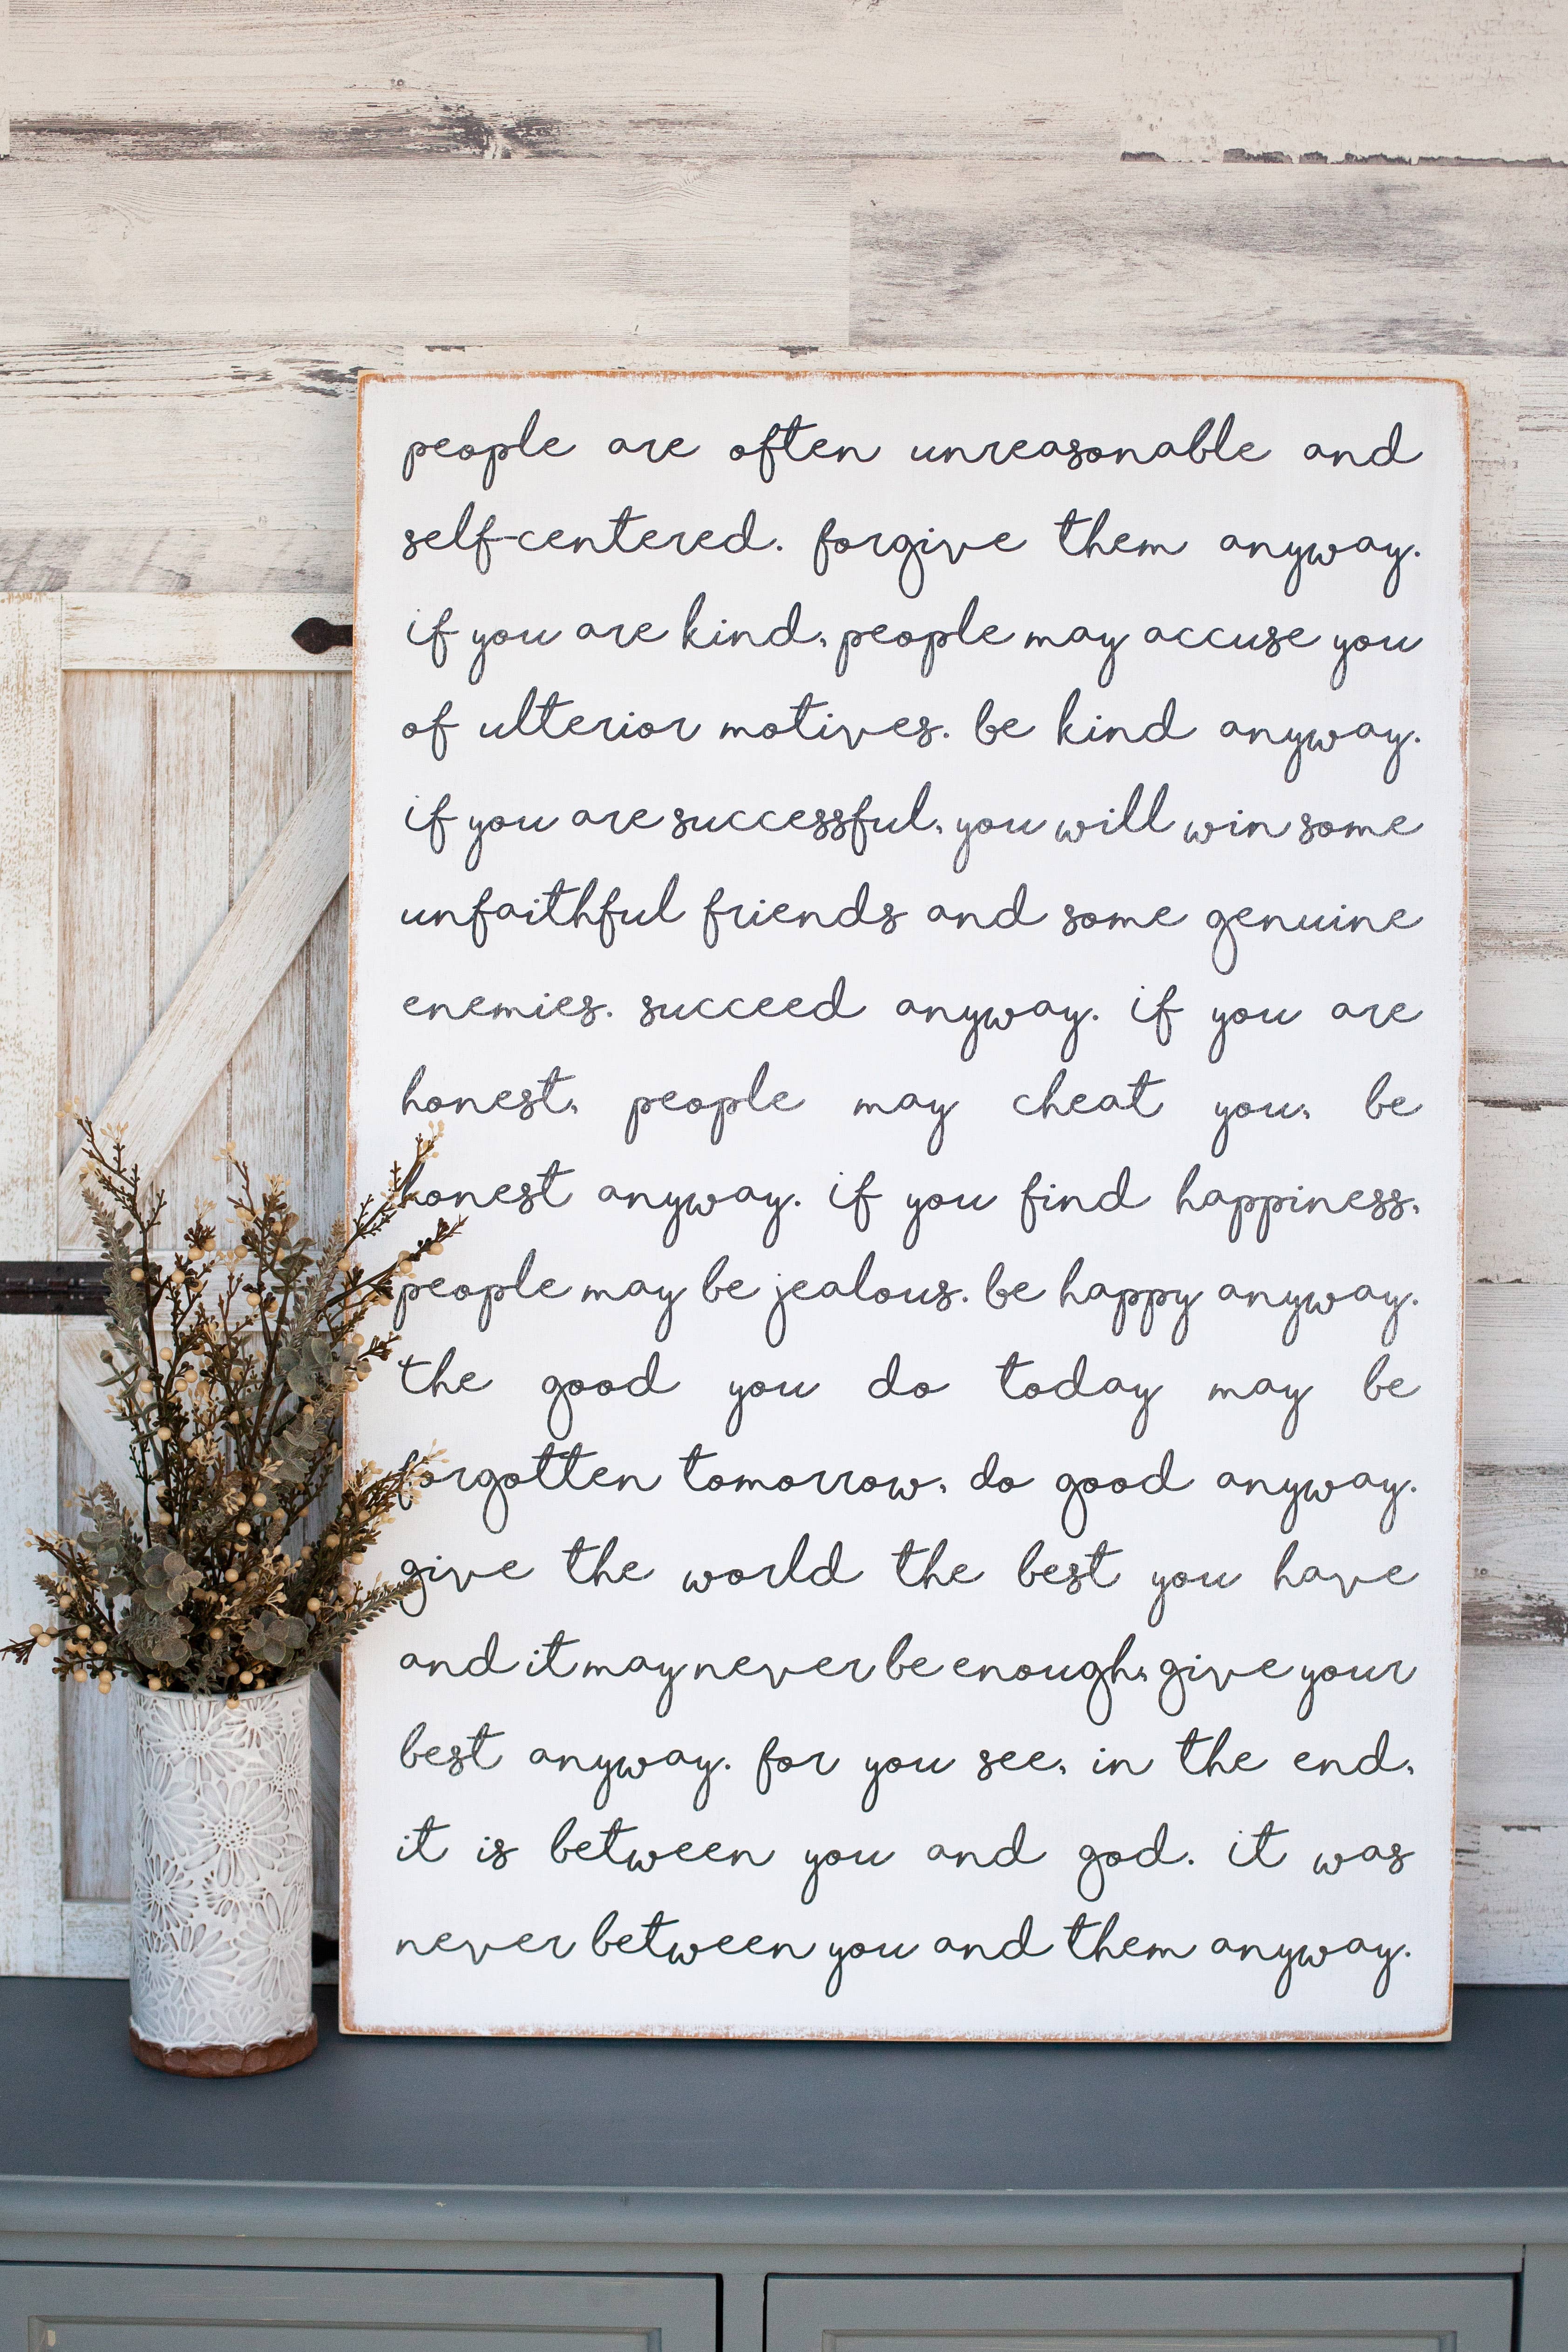 people are often unreasonable and
self-centered. forgive them anyway.
if you are kind, people may accuse you
of ulterior motives. be kind anyway.
if you are successful, you will win some
unfaithful friends and some genuine
enemies. succeed anyway. if you are
honest, people may cheat you, be
honest anyway. if you find happiness,
people may be jealous. be happy anyway.
the good you do today may be
forgotten tomorrow, do good anyway.
give the world the best you have
and it may never be enough, give your
best anyway. for you see, in the end,
it is between you and god. it was
never between you and them anyway.